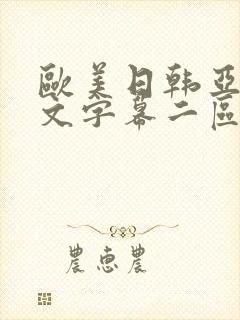 歐美日韩亞
文字幕二區
農恵農